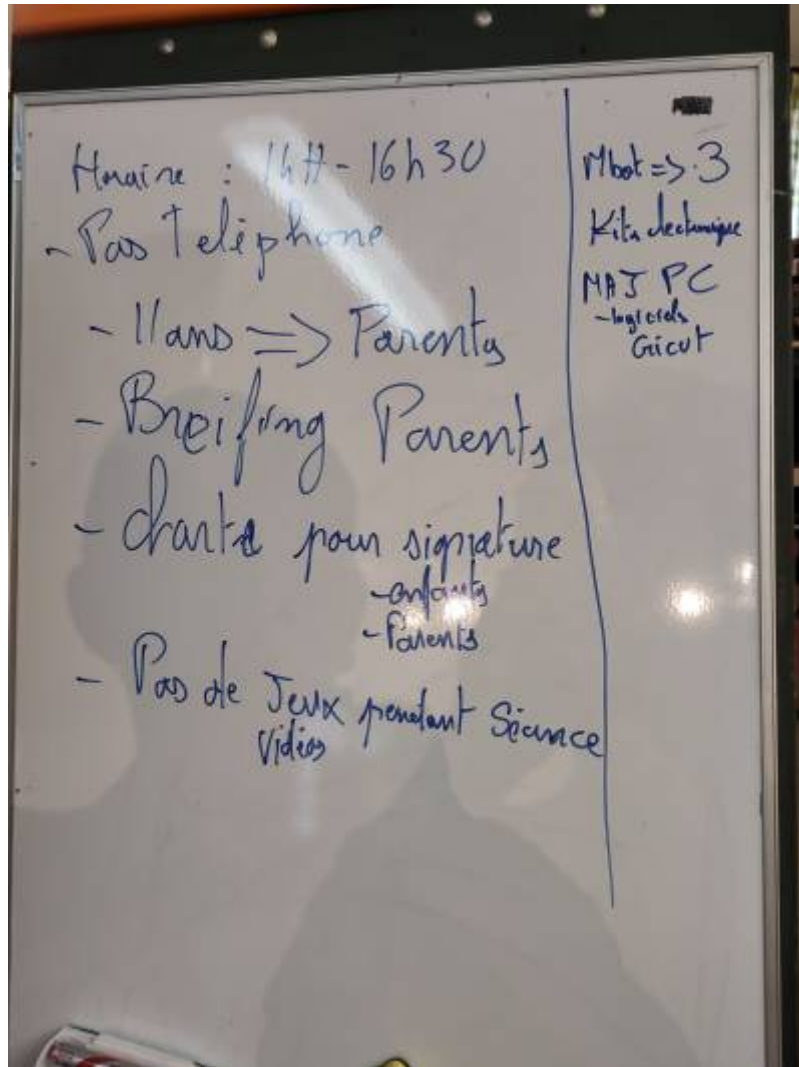 Horaire : 14H - 16h30
- Pas Teléphone
- 11ans => Parents
- Breifing Parents
- charte pour signature
- enfants
- Parents
- Pas de Jeux pendant Séance
Vidéos
Mbot => 3
Kits electronique
MAJ PC
- logiciels
Gicut